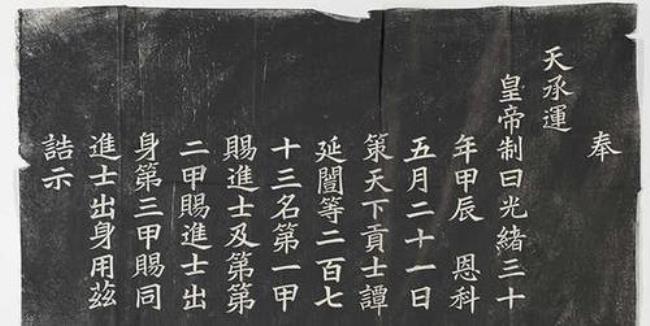 奉
天承運
皇帝制曰光緒三十
年甲辰 恩科
五月二十一日
策天下貢士譚
延闓等二百七
十三名第一甲
賜進士及第第
二甲賜進士出
身第三甲賜同
進士出身用茲
誥示